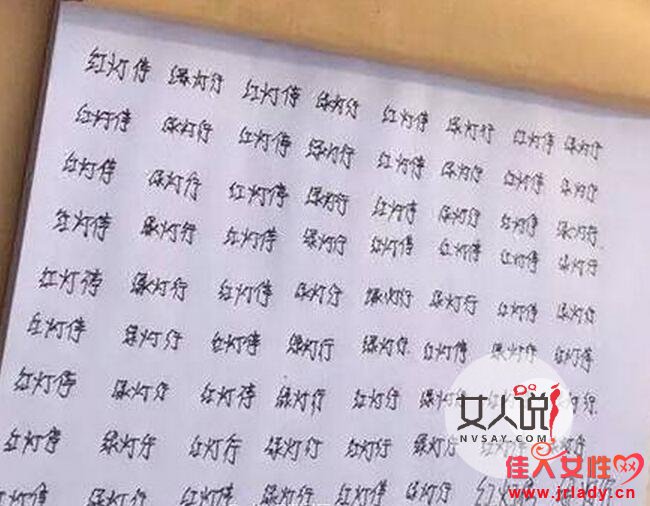 红灯停 绿灯行 红灯停 绿灯行 红灯停 绿灯行 红灯停 绿灯行
红灯停 绿灯行 红灯停 绿灯行 红灯停 绿灯行 红灯停 绿灯行
红灯停 绿灯行 红灯停 绿灯行 红灯停 绿灯行 红灯停 绿灯行
红灯停 绿灯行 红灯停 绿灯行 红灯停 红灯停 红灯停 绿灯行
红灯停 绿灯行 红灯停 绿灯行 绿灯行 绿灯行 红灯停 绿灯行
红灯停 绿灯行 红灯停 绿灯行 绿灯行 红灯停 绿灯行 红灯停
红灯停 绿灯行 红灯停 绿灯行 红灯行 绿灯行
红灯停 绿灯行 红灯行 绿灯行 红灯行 绿灯行
红灯停 绿灯行 红灯停 绿灯行 红灯行 绿灯行 红灯停
女人说
NVSAY.COM
佳人女性网
www.jrlady.cn